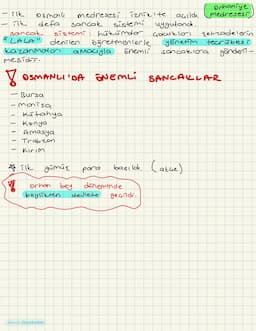 - İlk Osmanlı medresesi İznik'te açıldı.
Orhaniye
medresesi
- İlk defa sancak sistemi uygulandı.
sancak sistemi: hükümdar çocukları şehzadelerin
"LALA" denilen öğretmenlerle yönetim tecrübesi
kazanmaları amacıyla önemli sancaklara gönderil-
mesidir.
OSMANLI'DA ÖNEMLİ SANCAKLAR
- Bursa
- manisa
- Kütahya
- Konya
- Amasya
- Trabzon
- Kırım
* İlk gümüş para basıldı. (akçe)
Orhan bey döneminde
beylikten devlete geçildi.